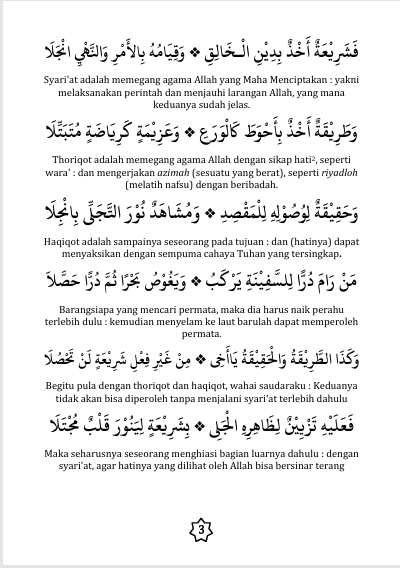 فَشَرِيْعَةٌ أَخْذٌ بِدِيْنِ الْخَالِقِ ❖ وَقِيَامُهُ بِالأَمْرِ وَالنَّهْيِ انْجَلَا
Syari'at adalah memegang agama Allah yang Maha Menciptakan : yakni
melaksanakan perintah dan menjauhi larangan Allah, yang mana
keduanya sudah jelas.
وَطَرِيْقَةٌ أَخْذٌ بِأَحْوَطَ كَالْوَرَعِ ❖ وَعَزِيْمَةٍ كَرِيَاضَةٍ مُتَبَتِّلَا
Thoriqot adalah memegang agama Allah dengan sikap hati², seperti
wara' : dan mengerjakan azimah (sesuatu yang berat), seperti riyadloh
(melatih nafsu) dengan beribadah.
وَحَقِيْقَةٌ لِوُصُوْلِهِ لِلْمَقْصِدِ ❖ وَمُشَاهَدٌ نُوْرَ التَّجَلِّى بِانْجِلَا
Haqiqot adalah sampainya seseorang pada tujuan : dan (hatinya) dapat
menyaksikan dengan sempuna cahaya Tuhan yang tersingkap.
مَنْ رَامَ دُرًّا لِلسَّفِيْنَةِ يَرْكَبُ ❖ وَيَغُوْصُ بَحْرًا ثُمَّ دُرًّا حَصَّلَا
Barangsiapa yang mencari permata, maka dia harus naik perahu
terlebih dulu : kemudian menyelam ke laut barulah dapat memperoleh
permata.
وَكَذَا الطَّرِيْقَةُ وَالْحَقِيْقَةُ يَاأَخِى ❖ مِنْ غَيْرِ فِعْلِ شَرِيْعَةٍ لَنْ تَحْصُلَا
Begitu pula dengan thoriqot dan haqiqot, wahai saudaraku : Keduanya
tidak akan bisa diperoleh tanpa menjalani syari'at terlebih dahulu
فَعَلَيْهِ تَزْيِيْنٌ لِظَاهِرِهِ الْجَلِى ❖ بِشَرِيْعَةٍ لِيَنُوْرَ قَلْبٌ مُجْتَلَا
Maka seharusnya seseorang menghiasi bagian luarnya dahulu : dengan
syari'at, agar hatinya yang dilihat oleh Allah bisa bersinar terang
3